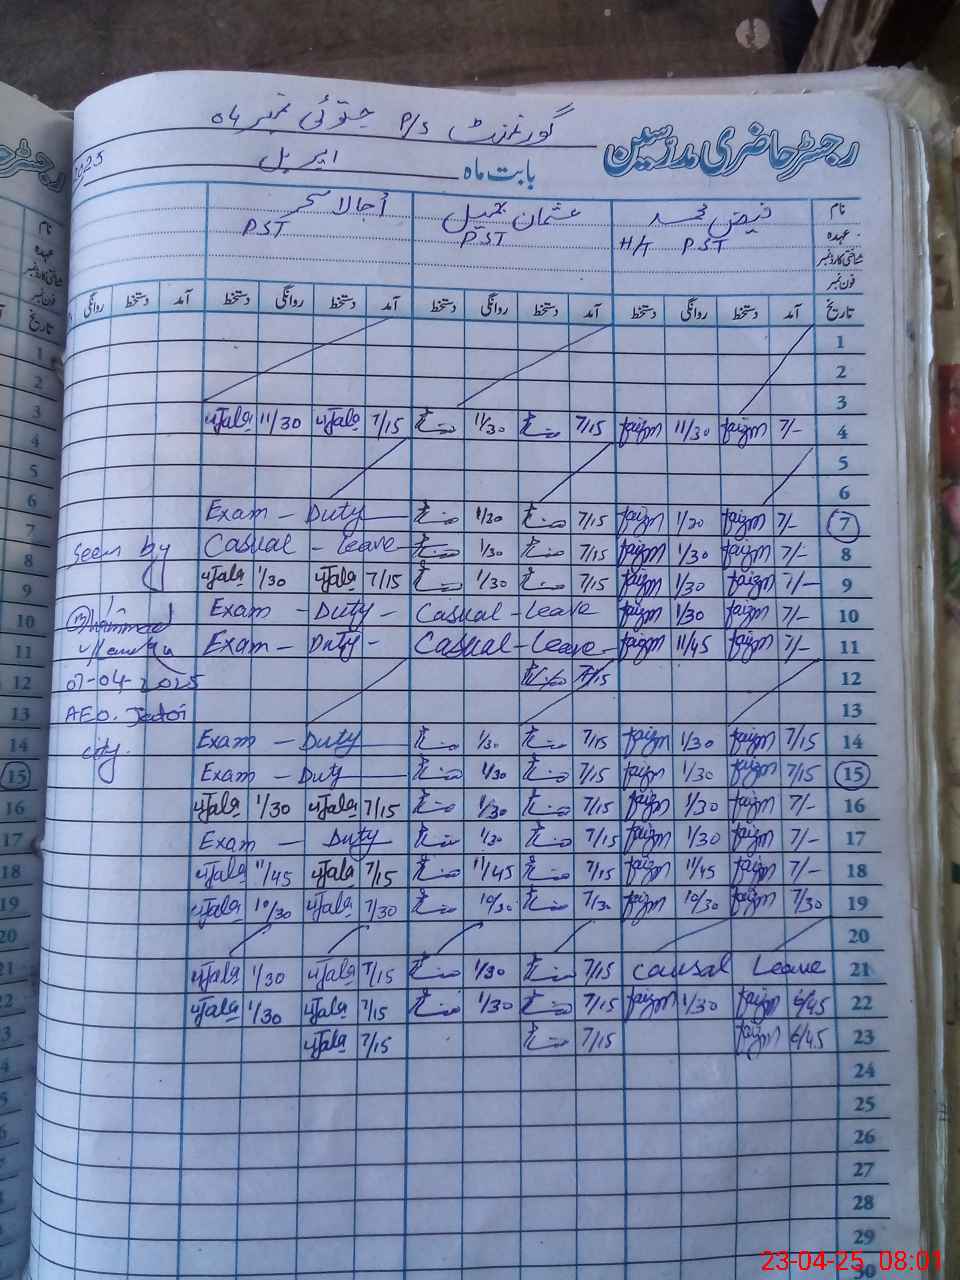 گورنمنٹ P/S جتوئی نمبر 04
رجسٹر حاضری مدرسین
بابت ماہ اپریل 2025
نام فیض محمد عثمان جمیل اُجالا سحر
عہدہ H/T PST PST PST
شناختی کارڈ نمبر
فون نمبر
تاریخ آمد دستخط روانگی دستخط آمد دستخط روانگی دستخط آمد دستخط روانگی دستخط آمد دستخط روانگی
1
2
3
ujala 11/30 ujala 7/15 11/30 7/15 faizm 11/30 faizm 7/- 4
5
6
Exam - Duty 1/30 7/15 faizm 1/30 faizm 7/- 7
Casual - Leave 1/30 7/15 faizm 1/30 faizm 7/- 8
ujala 1/30 ujala 7/15 1/30 7/15 faizm 1/30 faizm 7/- 9
Exam - Duty - Casual - Leave faizm 1/30 faizm 7/- 10
Exam - Duty - Casual - Leave faizm 11/45 faizm 7/- 11
7/15 12
13
Exam - Duty 1/30 7/15 faizm 1/30 faizm 7/15 14
Exam - Duty 1/30 7/15 faizm 1/30 faizm 7/15 15
ujala 1/30 ujala 7/15 1/30 7/15 faizm 1/30 faizm 7/- 16
Exam - Duty 1/30 7/15 faizm 1/30 faizm 7/- 17
ujala 11/45 ujala 7/15 11/45 7/15 faizm 11/45 faizm 7/- 18
ujala 10/30 ujala 7/30 10/30 7/30 faizm 10/30 faizm 7/30 19
20
ujala 1/30 ujala 7/15 1/30 7/15 causal Leave 21
ujala 1/30 ujala 7/15 1/30 7/15 faizm 1/30 faizm 6/45 22
ujala 7/15 7/15 faizm 6/45 23
24
25
26
27
28
29
30
Seen by
Muhammad
07-04-2025
AEO. Jatoi
city.
رجسٹر
نام
عہدہ
شناختی کارڈ نمبر
فون نمبر
تاریخ
1
2
3
4
5
6
7
8
9
10
11
12
13
14
15
16
17
18
19
20
21
22
23-04-25 08:01